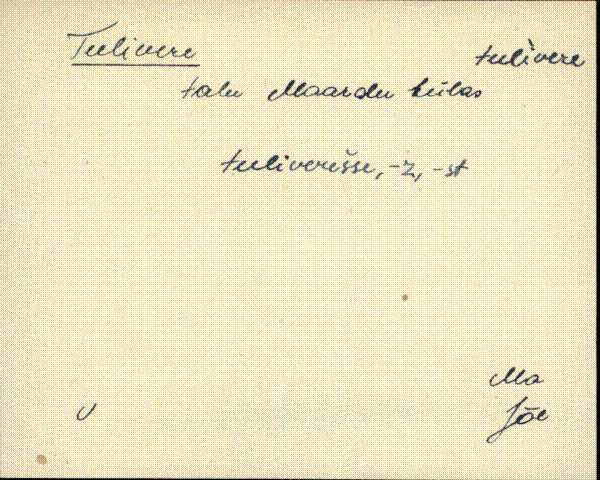 Tulivere tulìvere
talu Maardu külas
tuliverešse, -z, -st
Ma
Jõe